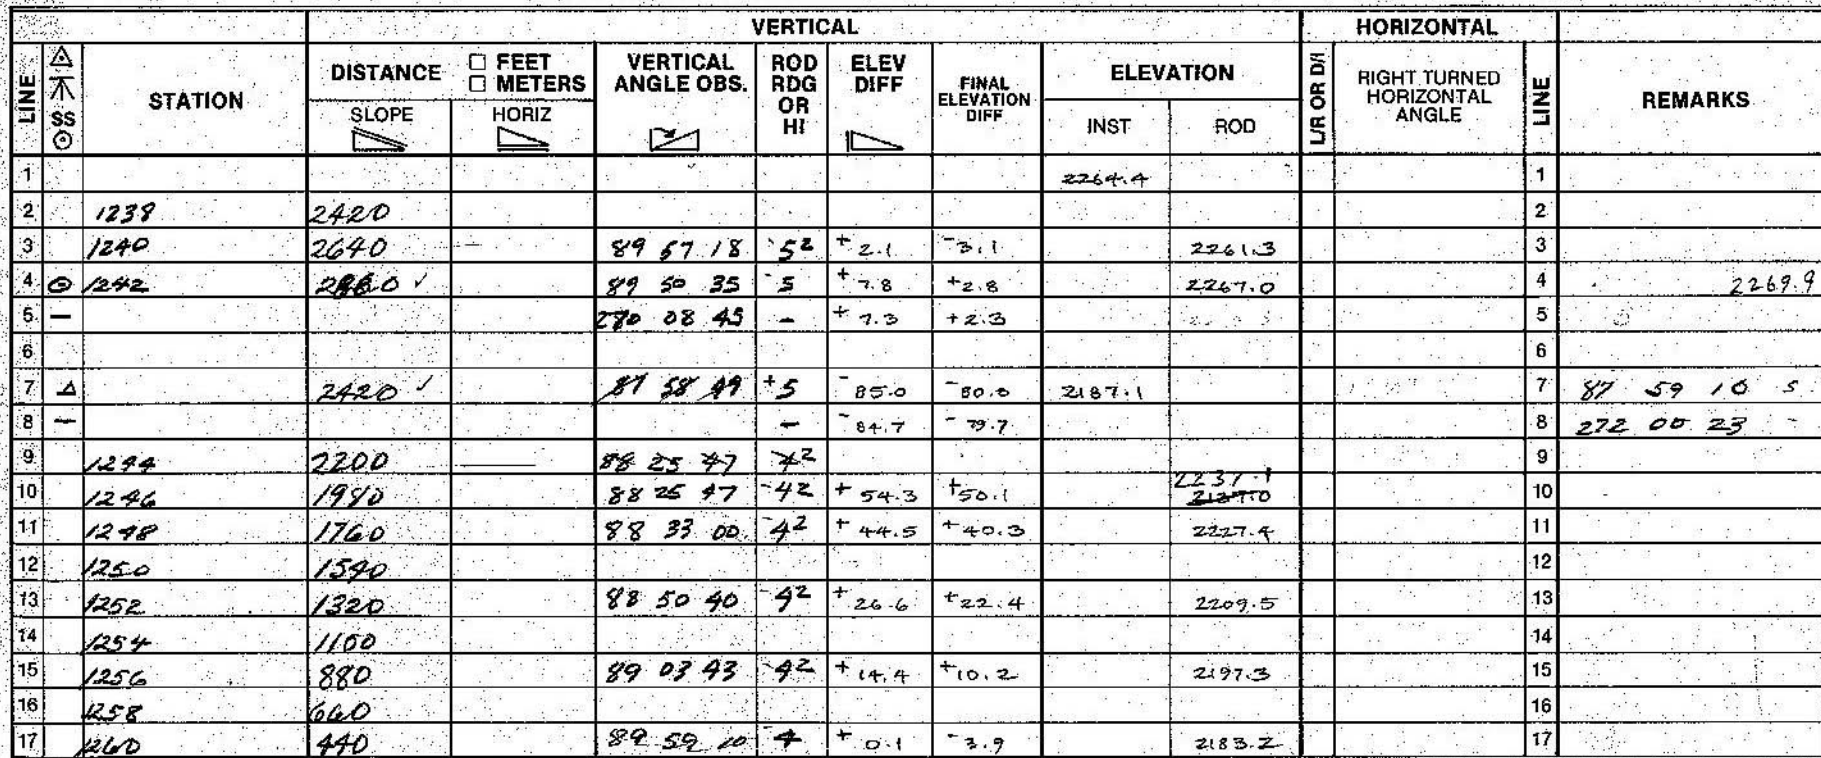 VERTICAL HORIZONTAL
LINE SS STATION DISTANCE □ FEET □ METERS SLOPE HORIZ VERTICAL ANGLE OBS. ROD RDG OR HI ELEV DIFF FINAL ELEVATION DIFF ELEVATION INST ROD L/R OR D/I RIGHT TURNED HORIZONTAL ANGLE LINE REMARKS
1 2264.4 1
2 1238 2420 2
3 1240 2640 — 89 57 18 -5² +2.1 -3.1 2261.3 3
4 ⊙ 1242 2860 ✓ 89 50 35 -5 +7.8 +2.8 2267.0 4 2269.9
5 — 08 45 – +7.3 +2.3 5
6 6
7 △ 2420 ✓ +5 -85.0 -80.0 2187.1 7 87 59 10 5
8 — – -84.7 -79.7 8 272 00 23 -
9 1244 2200 — 88 25 47 9
10 1246 1980 88 25 47 -4² +54.3 +50.1 2237.1 10
11 1248 1760 88 33 00 -4² +44.5 +40.3 2227.4 11
12 1250 1540 12
13 1252 1320 88 50 40 -4² +26.6 +22.4 2209.5 13
14 1254 1100 14
15 1256 880 89 03 43 -4² +14.4 +10.2 2197.3 15
16 1258 660 16
17 1260 440 89 59 10 -4 +0.1 -3.9 2183.2 17